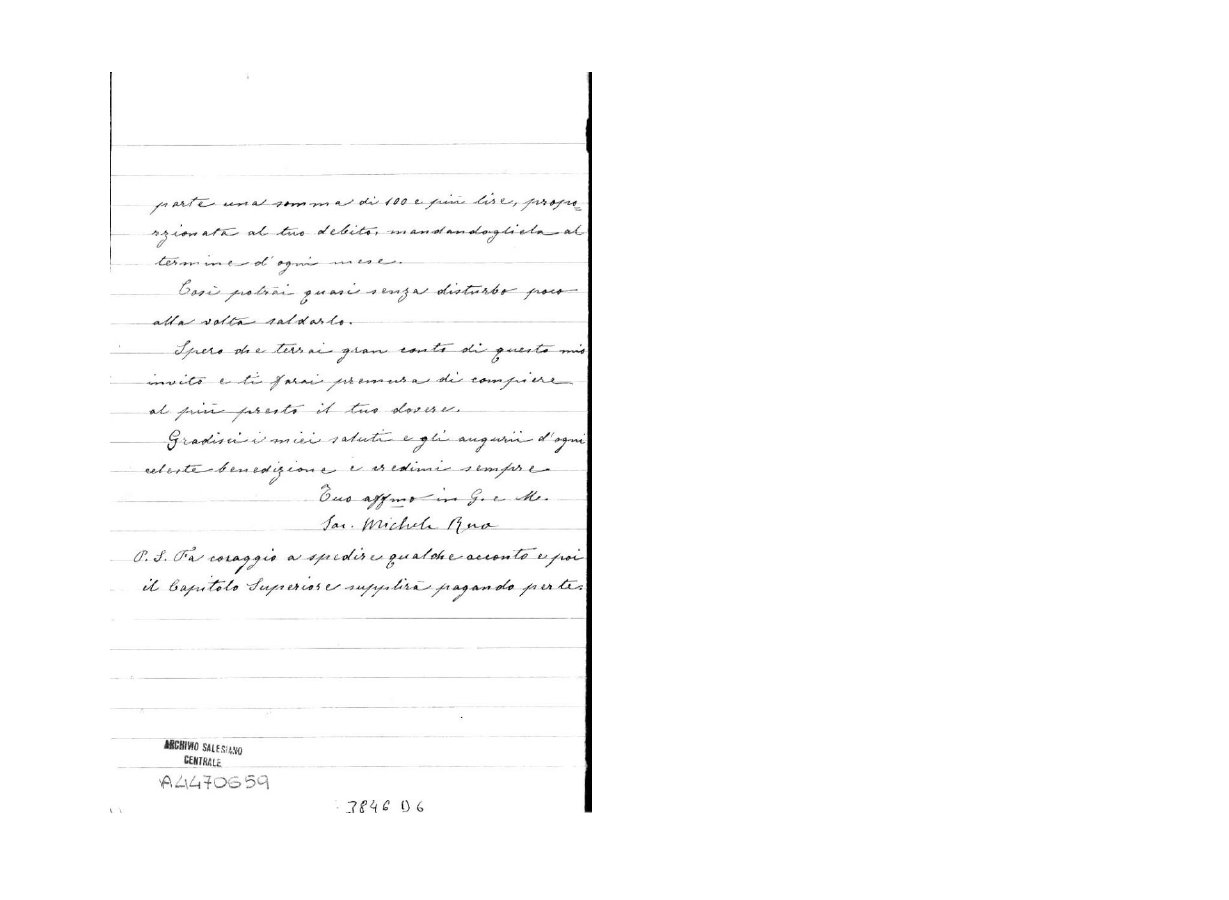 parte una somma di 100 e più lire, propo=
rzionata al tuo debito, mandandogliela al
termine d'ogni mese.
Così potrai quasi senza disturbo poco
alla volta saldarlo.
Spero che terrai gran conto di questo mio
invito e ti farai premura di compiere
al più presto il tuo dovere.
Gradisci i miei saluti e gli augurii d'ogni
celeste benedizione e credimi sempre
Tuo affmo in G. e M.
Sac. Michele Rua
P. S. Fa coraggio a spedire qualche acconto e poi
il Capitolo Superiore supplirà pagando per te.
ARCHIVIO SALESIANO
CENTRALE
A4470659
3846 D6